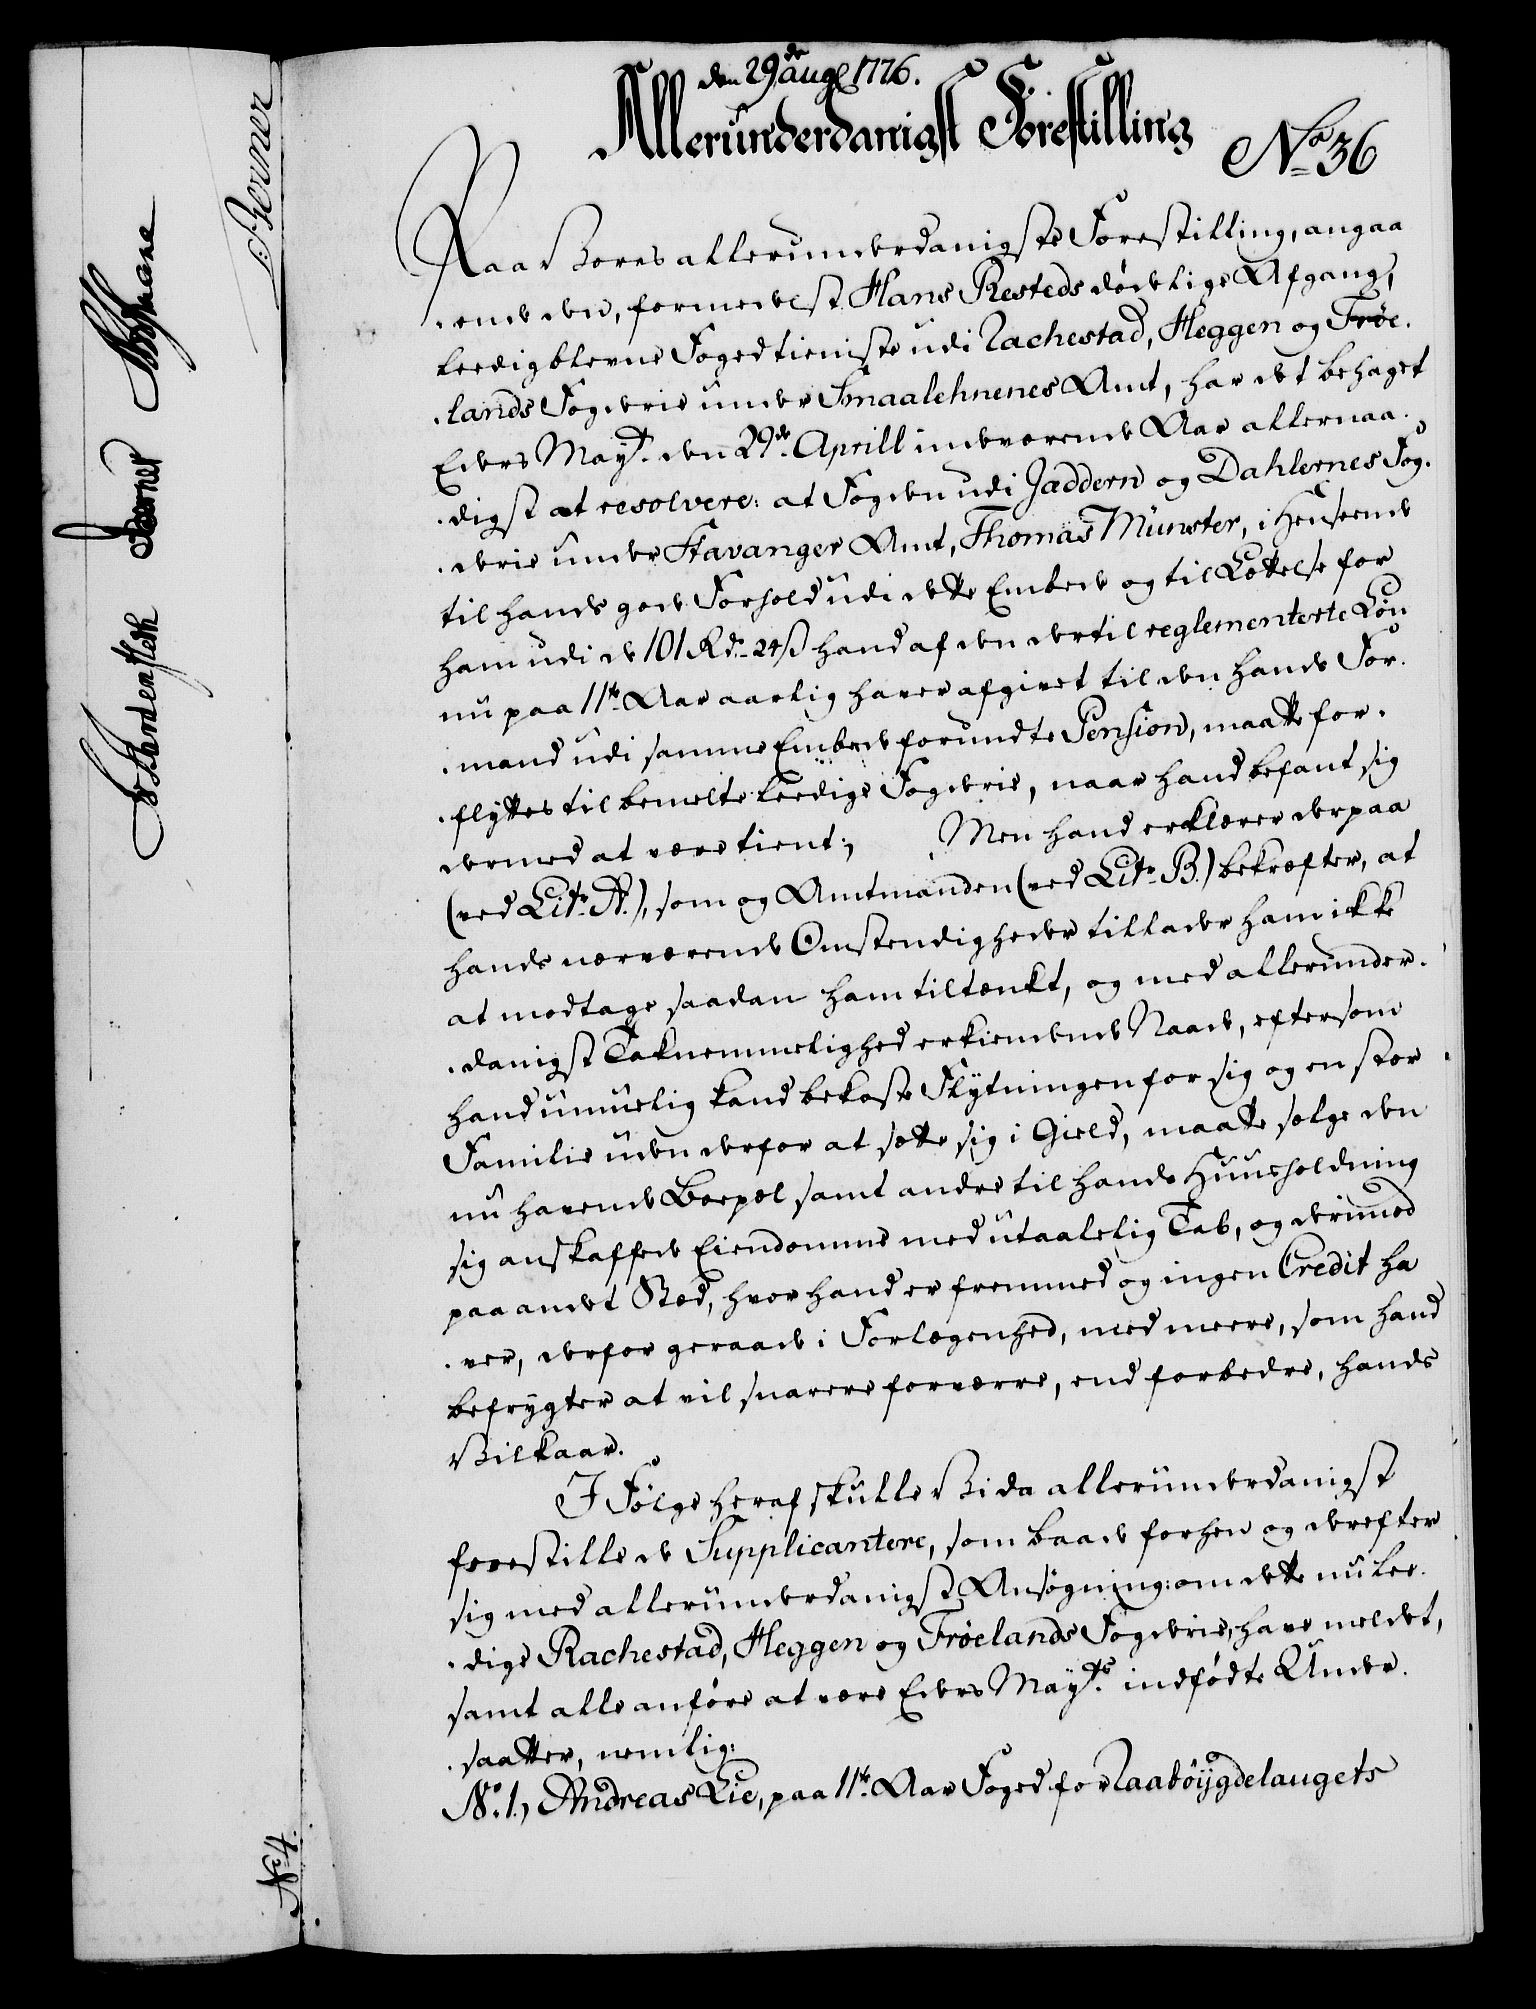 den 29de augs 1776.
Allerunderdanigst Forestilling
No 36
Paa Vores allerunderdanigste Forestilling, angaa
ende den, formedelst Hans Resteds dødelige Afgang,
leedig blevne Foged tieniste udi Rachestad, Heggen og Frøe-
lands Fogderie under Smaalehnenes Amt, har det behaget
Eders Mayt. den 29de Aprill indeværende Aar allernaa-
digst at resolvere: at Fogden udi Jaddern og Dahlernes Fog-
derie under Stavanger Amt, Thomas Münster, i Henseende
til hands gode Forhold udi dette Embede og til Lettelse for
ham udi de 101 Rdr. 24 s hand af den dertil reglementerte Løn
nu paa 11te Aar aarlig haver afgivet til den hands For-
mand udi samme Embede forundte Pension, maatte for-
flyttes til bemelte leedige Fogderie, naar hand befant sig
dermed at være tient; Men hand erklærer derpaa
(ved Litr. A.), som og Amtmanden (ved Litr. B.) bekræfter, at
hands nærværende Omstendigheder tillader ham ikke
at modtage saadan ham tiltenkt, og med allerunder-
danigst Taknemmelighed erkiendende Naade, eftersom
hand umuelig kand bekoste Flytningen for sig og en stor
Familie uden derfor at sette sig i Gield, maatte sælge den
nu havende Boepæl samt andre til hands Huusholdning
sig anskaffede Eiendomme med utaalelig Tab, og derimod
paa andet Stæd, hvor hand er fremmed og ingen Credit ha
ver, derfor geraade i Forlegenhed, med meere, som hand
befrygter at vil snarere forværre, end forbedre, hands
Vilkaar.
I Følge heraf skulle Vi da allerunderdanigst
forestille de Supplicantere, som baade forhen og derefter
sig med allerunderdanigst Ansøgning om dette nu lee-
dige Rachestad, Heggen og Frøelands Fogderie, have meldet,
samt alle anføre at være Eders Mayts. indfødte Under-
saatter, nemlig:
No. 1., Andreas Lie, paa 11te Aar Foged for Raabøygdelaugets
No 4.